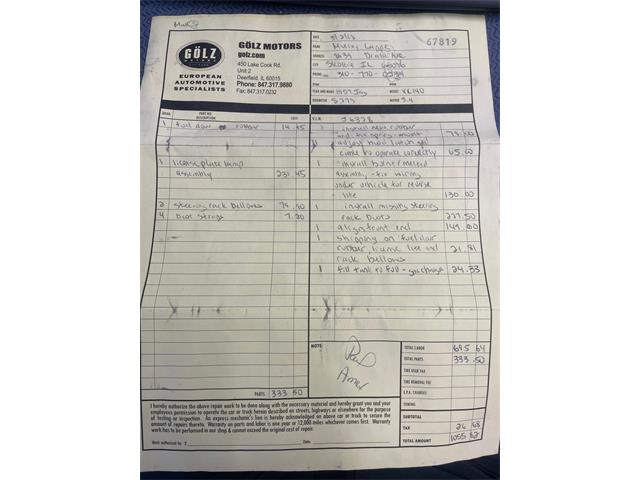 GÖLZ
MOTORS
EUROPEAN
AUTOMOTIVE
SPECIALISTS
GÖLZ MOTORS
golz.com
450 Lake Cook Rd.
Unit 2
Deerfield, IL 60015
Phone: 847.317.9880
Fax: 847.317.0232
DATE
NAME
67819
ADDRESS 8639
CITY Skokie IL 60076
PHONE
YEAR AND MAKE 1957 Jag MODEL XK140
V.I.N.
QUAN. PART NO. DESCRIPTION COST
1 fuel door rubber 14.45
1 license plate lamp
assembly 231.45
2 steering rack bellows 79.90
4 boot straps 7.80
1 install new rubber
79.00
1 adjust hood latch
came to operate correctly 65.00
1 install bumper
assembly - fix wiring
under vehicle for reverse
lite 130.00
1 install missing steering
rack boots 227.50
1 align front end 149.00
1 shipping on fuel door
rubber, license lite and
rack bellows 21.81
1 fill tank to full - gas charge 24.33
NOTE:
Amex
PARTS 333.50
TOTAL LABOR 695 64
TOTAL PARTS 333.50
TIRE USER TAX
TIRE REMOVAL FEE
E.P.A. CHARGES
TOWING
SUBTOTAL
TAX 26 68
TOTAL AMOUNT 1055 82
I hereby authorize the above repair work to be done along with the necessary material and hereby grant you and your
employees permission to operate the car or truck herein described on streets, highways or elsewhere for the purpose
of testing or inspection. An express mechanic's lien is hereby acknowledged on above car or truck to secure the
amount of repairs thereto. Warranty on parts and labor is one year or 12,000 miles whichever comes first. Warranty
work has to be performed in our shop & cannot exceed the original cost of repair.
Work authorized by X Date